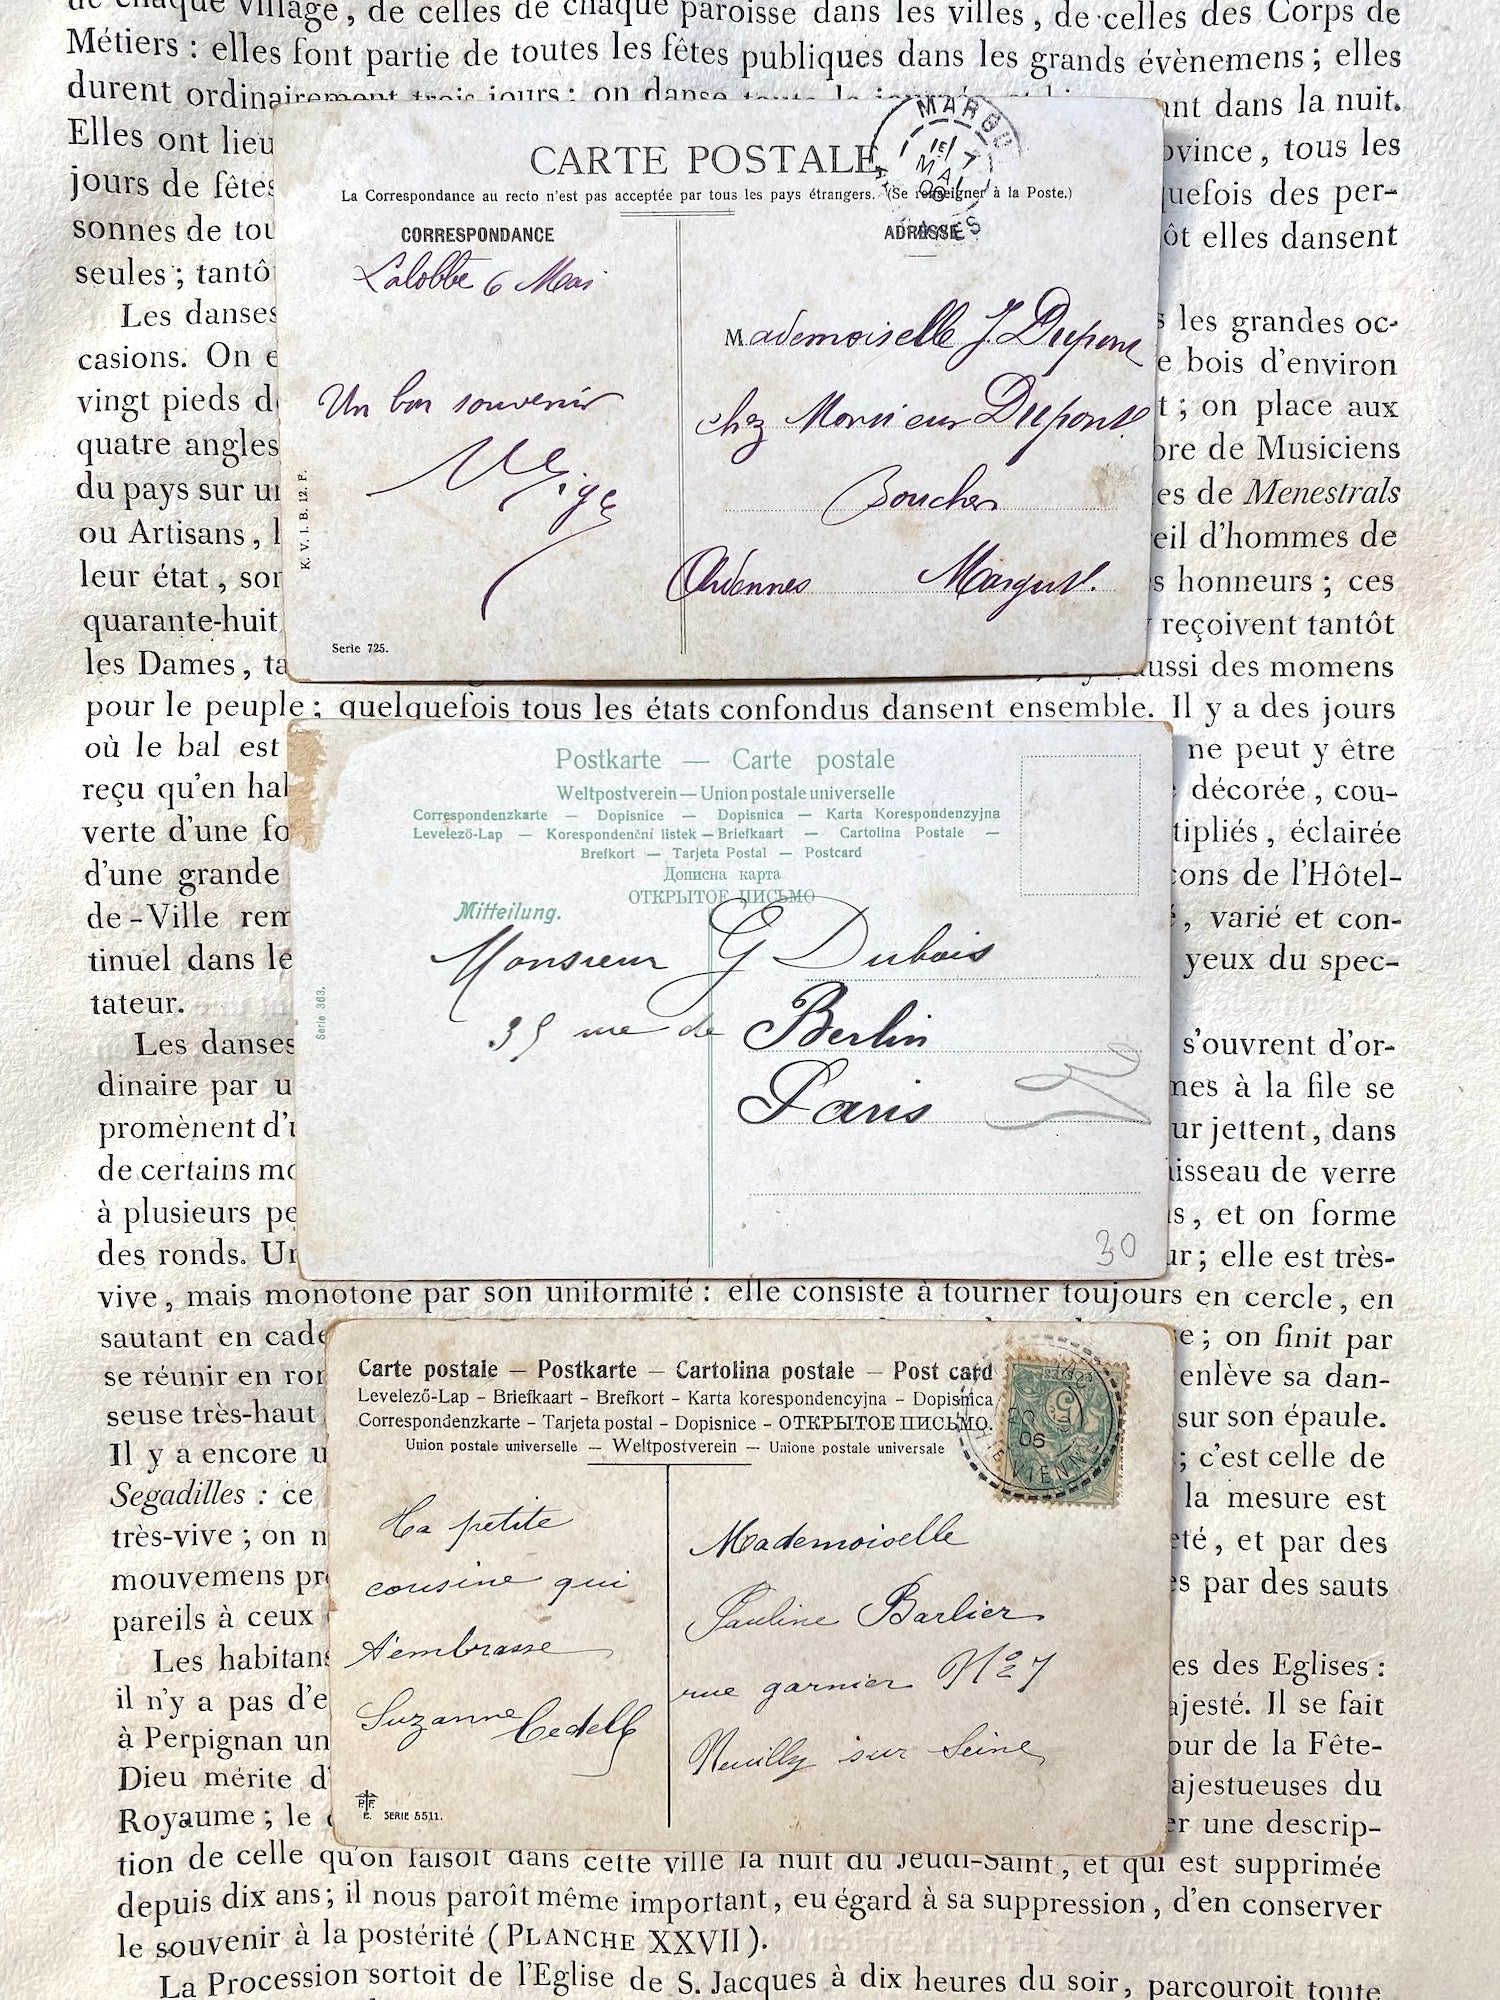 de chaque village, de celles de chaque paroisse dans les villes, de celles des Corps de
Métiers : elles font partie de toutes les fêtes publiques dans les grands évènemens ; elles
durent ordinairement trois jours ; on danse toute la journée et bien avant dans la nuit.
Elles ont lieu
ovince, tous les
jours de fêtes
quefois des per-
sonnes de tou
ôt elles dansent
seules ; tantô
CARTE POSTALE
La Correspondance au recto n'est pas acceptée par tous les pays étrangers. (Se renseigner à la Poste.)
MARGU
7
MAI
06
CORRESPONDANCE
ADRESSE
Lalobbe 6 Mai
Un bon souvenir
K. V. I. B. 12. F.
Serie 725.
Mademoiselle J. Dupont
chez Monsieur Dupont
Boucher
Ardennes Margut.
Les danses
s les grandes oc-
casions. On e
e bois d'environ
vingt pieds de
t ; on place aux
quatre angles
bre de Musiciens
du pays sur un
es de Menestrals
ou Artisans, l
eil d'hommes de
leur état, son
s honneurs ; ces
quarante-huit
y reçoivent tantôt
les Dames, ta
aussi des momens
pour le peuple ; quelquefois tous les états confondus dansent ensemble. Il y a des jours
où le bal est
ne peut y être
reçu qu'en hal
décorée, cou-
verte d'une fo
tipliés, éclairée
d'une grande
çons de l'Hôtel-
de-Ville rem
, varié et con-
tinuel dans le
yeux du spec-
tateur.
Postkarte — Carte postale
Weltpostverein — Union postale universelle
Correspondenzkarte — Dopisnice — Dopisnica — Karta Korespondenzyjna
Levelezö-Lap — Korespondenční listek — Briefkaart — Cartolina Postale —
Brefkort — Tarjeta Postal — Postcard
Дописна карта
ОТКРЫТОЕ ПИСЬМО
Mitteilung.
Serie 363.
Monsieur G Dubois
35 rue de Berlin
Paris
30
Les danses
s'ouvrent d'or-
dinaire par u
mes à la file se
promènent d'u
ur jettent, dans
de certains mo
aisseau de verre
à plusieurs pe
s, et on forme
des ronds. Un
ur ; elle est très-
vive, mais monotone par son uniformité : elle consiste à tourner toujours en cercle, en
sautant en cade
e ; on finit par
se réunir en ron
enlève sa dan-
seuse très-haut
sur son épaule.
Il y a encore u
; c'est celle de
Segadilles : ce
la mesure est
très-vive ; on n
eté, et par des
mouvemens pr
es par des sauts
pareils à ceux
Carte postale — Postkarte — Cartolina postale — Post card
Levelező-Lap – Briefkaart – Brefkort – Karta korespondencyjna – Dopisnica
Correspondenzkarte – Tarjeta postal – Dopisnice – ОТКРЫТОЕ ПИСЬМО.
Union postale universelle — Weltpostverein — Unione postale universale
06
VIENNE
Ta petite
cousine qui
t'embrasse
Suzanne
P.F.
E. SERIE 5511.
Mademoiselle
Pauline Barlier
rue garnier No 7
Neuilly sur Seine
Les habitans
es des Eglises :
il n'y a pas d'e
ajesté. Il se fait
à Perpignan un
our de la Fête-
Dieu mérite d'
ajestueuses du
Royaume ; le
er une descrip-
tion de celle qu'on faisoit dans cette ville la nuit du Jeudi-Saint, et qui est supprimée
depuis dix ans ; il nous paroît même important, eu égard à sa suppression, d'en conserver
le souvenir à la postérité (PLANCHE XXVII).
La Procession sortoit de l'Eglise de S. Jacques à dix heures du soir, parcouroit toute